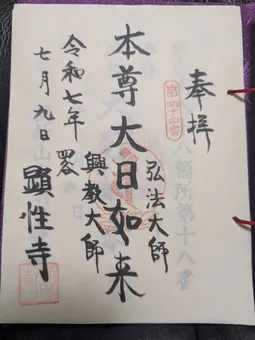 奉拝
第四十四番
弘法大師
本尊大日如来
興教大師
令和七年
七月九日
四谷
顕性寺
八箇所第十八番